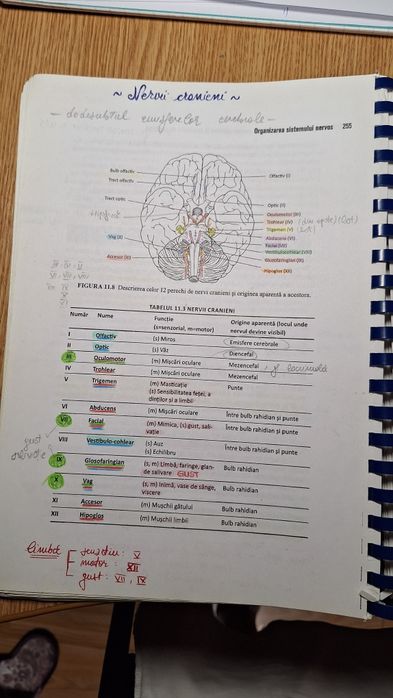 ~ Nervii cranieni ~
- dedesubtul emisferelor cerebrale -
Organizarea sistemului nervos 255
Bulb olfactiv
Tract olfactiv
Olfactiv (I)
Tract optic
Optic (II)
Oculomotor (III)
Trohlear (IV)
Trigemen (V)
Abducens (VI)
Facial (VII)
Vestibulocohlear (VIII)
Glosofaringian (IX)
Vag (X)
Accesor (XI)
Hipoglos (XII)
FIGURA 11.8 Descrierea celor 12 perechi de nervi cranieni și originea aparentă a acestora.
TABELUL 11.3 NERVII CRANIENI
Număr Nume Funcție (s=senzorial, m=motor) Origine aparentă (locul unde nervul devine vizibil)
I Olfactiv (s) Miros Emisfere cerebrale
II Optic (s) Văz Diencefal
III Oculomotor (m) Mișcări oculare Mezencefal
IV Trohlear (m) Mișcări oculare Mezencefal
V Trigemen (m) Masticație Punte
(s) Sensibilitatea feței, a
dinților și a limbii
VI Abducens (m) Mișcări oculare Între bulb rahidian și punte
VII Facial (m) Mimica, (s) gust, sali-
vație Între bulb rahidian și punte
VIII Vestibulo-cohlear (s) Auz Între bulb rahidian și punte
(s) Echilibru
IX Glosofaringian (s, m) Limbă, faringe, glan-
de salivare GUST Bulb rahidian
X Vag (s, m) Inimă, vase de sânge,
viscere Bulb rahidian
XI Accesor (m) Mușchii gâtului Bulb rahidian
XII Hipoglos (m) Mușchii limbii Bulb rahidian
gust
limbă
senzitiv: V
motor: XII
gust: VII, IX